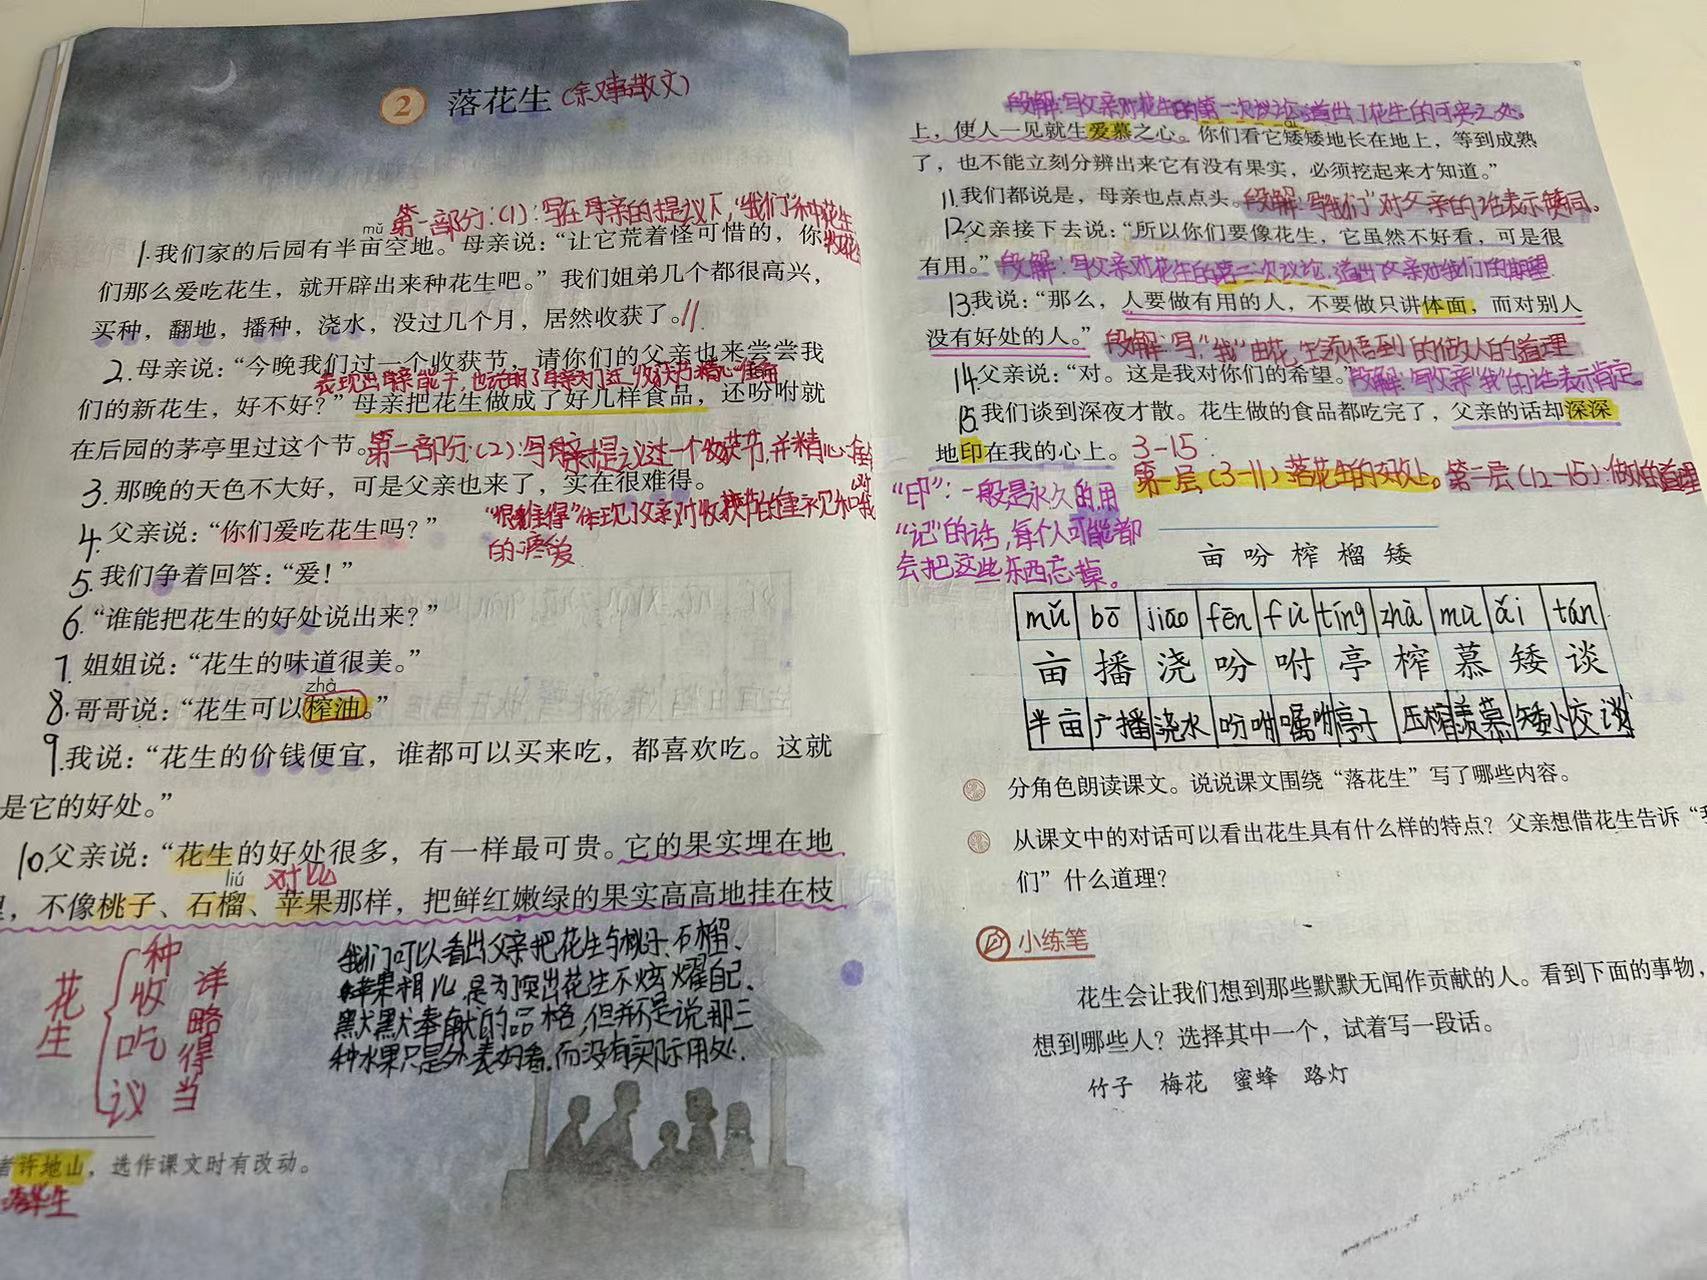 2 落花生(叙事散文)
第一部分:(1):写在母亲的提议下,“我们”种花生
收花生
mǔ
1.我们家的后园有半亩空地。母亲说:“让它荒着怪可惜的,你
们那么爱吃花生,就开辟出来种花生吧。”我们姐弟几个都很高兴,
买种,翻地,播种,浇水,没过几个月,居然收获了。//
2.母亲说:“今晚我们过一个收获节,请你们的父亲也来尝尝我
表现出母亲能干,也说明了母亲对过“收获节”精心准备
们的新花生,好不好?”母亲把花生做成了好几样食品,还吩咐就
在后园的茅亭里过这个节。第二部分:(2):写母亲提议过一个收获节,并精心准备
3.那晚的天色不大好,可是父亲也来了,实在很难得。
“很难得”体现了父亲对收获节的重视和对我
的疼爱
4.父亲说:“你们爱吃花生吗?”
5.我们争着回答:“爱!”
6.“谁能把花生的好处说出来?”
7.姐姐说:“花生的味道很美。”
zhà
8.哥哥说:“花生可以榨油。”
9.我说:“花生的价钱便宜,谁都可以买来吃,都喜欢吃。这就
是它的好处。”
10.父亲说:“花生的好处很多,有一样最可贵。它的果实埋在地
liú 对比
里,不像桃子、石榴、苹果那样,把鲜红嫩绿的果实高高地挂在枝
花生
种
收
吃
议
详略得当
我们可以看出父亲把花生与桃子、石榴、
苹果相比,是为了突出花生不炫耀自己,
默默奉献的品格,但并不是说那三
种水果只是外表好看,而没有实际用处.
者许地山,选作课文时有改动。
落华生
段解:写父亲对花生的第一次议论,道出了花生的可贵之处。
上,使人一见就生爱慕之心。你们看它矮矮地长在地上,等到成熟
了,也不能立刻分辨出来它有没有果实,必须挖起来才知道。”
11.我们都说是,母亲也点点头。段解:写“我们”对父亲的话表示赞同。
12.父亲接下去说:“所以你们要像花生,它虽然不好看,可是很
有用。”段解:写父亲对花生的第二次议论,道出父亲对我们的期望
13.我说:“那么,人要做有用的人,不要做只讲体面,而对别人
没有好处的人。”段解:写“我”由花生领悟到的做人的道理
14.父亲说:“对。这是我对你们的希望。”段解:写父亲“我”的话表示肯定。
15.我们谈到深夜才散。花生做的食品都吃完了,父亲的话却深深
地印在我的心上。3-15:
第一层(3-11)落花生的好处。第二层(12-15):做人的道理
“印”:一般是永久的,用
“记”的话,每个人可能都
会把这些东西忘掉。
亩 吩 榨 榴 矮
mǔ bō jiāo fēn fù tíng zhà mù ǎi tán
亩 播 浇 吩 咐 亭 榨 慕 矮 谈
半亩 广播 浇水 吩咐 嘱咐 亭子 压榨 羡慕 矮小 交谈
分角色朗读课文。说说课文围绕“落花生”写了哪些内容。
从课文中的对话可以看出花生具有什么样的特点?父亲想借花生告诉“我
们”什么道理?
小练笔
花生会让我们想到那些默默无闻作贡献的人。看到下面的事物,
想到哪些人?选择其中一个,试着写一段话。
竹子 梅花 蜜蜂 路灯